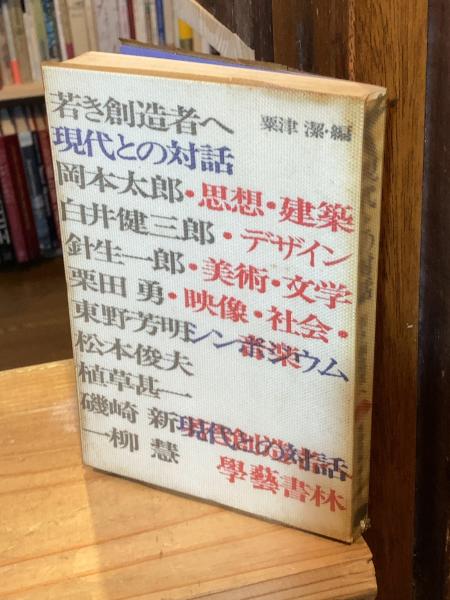 若き創造者へ
粟津 潔・編
現代との対話
岡本太郎・思想・建築
白井健三郎・デザイン
針生一郎・美術・文学
栗田 勇・映像・社会・
東野芳明シンポジウム
音楽
松本俊夫
植草甚一
磯崎 新 現代との対話
一柳 慧
學藝書林